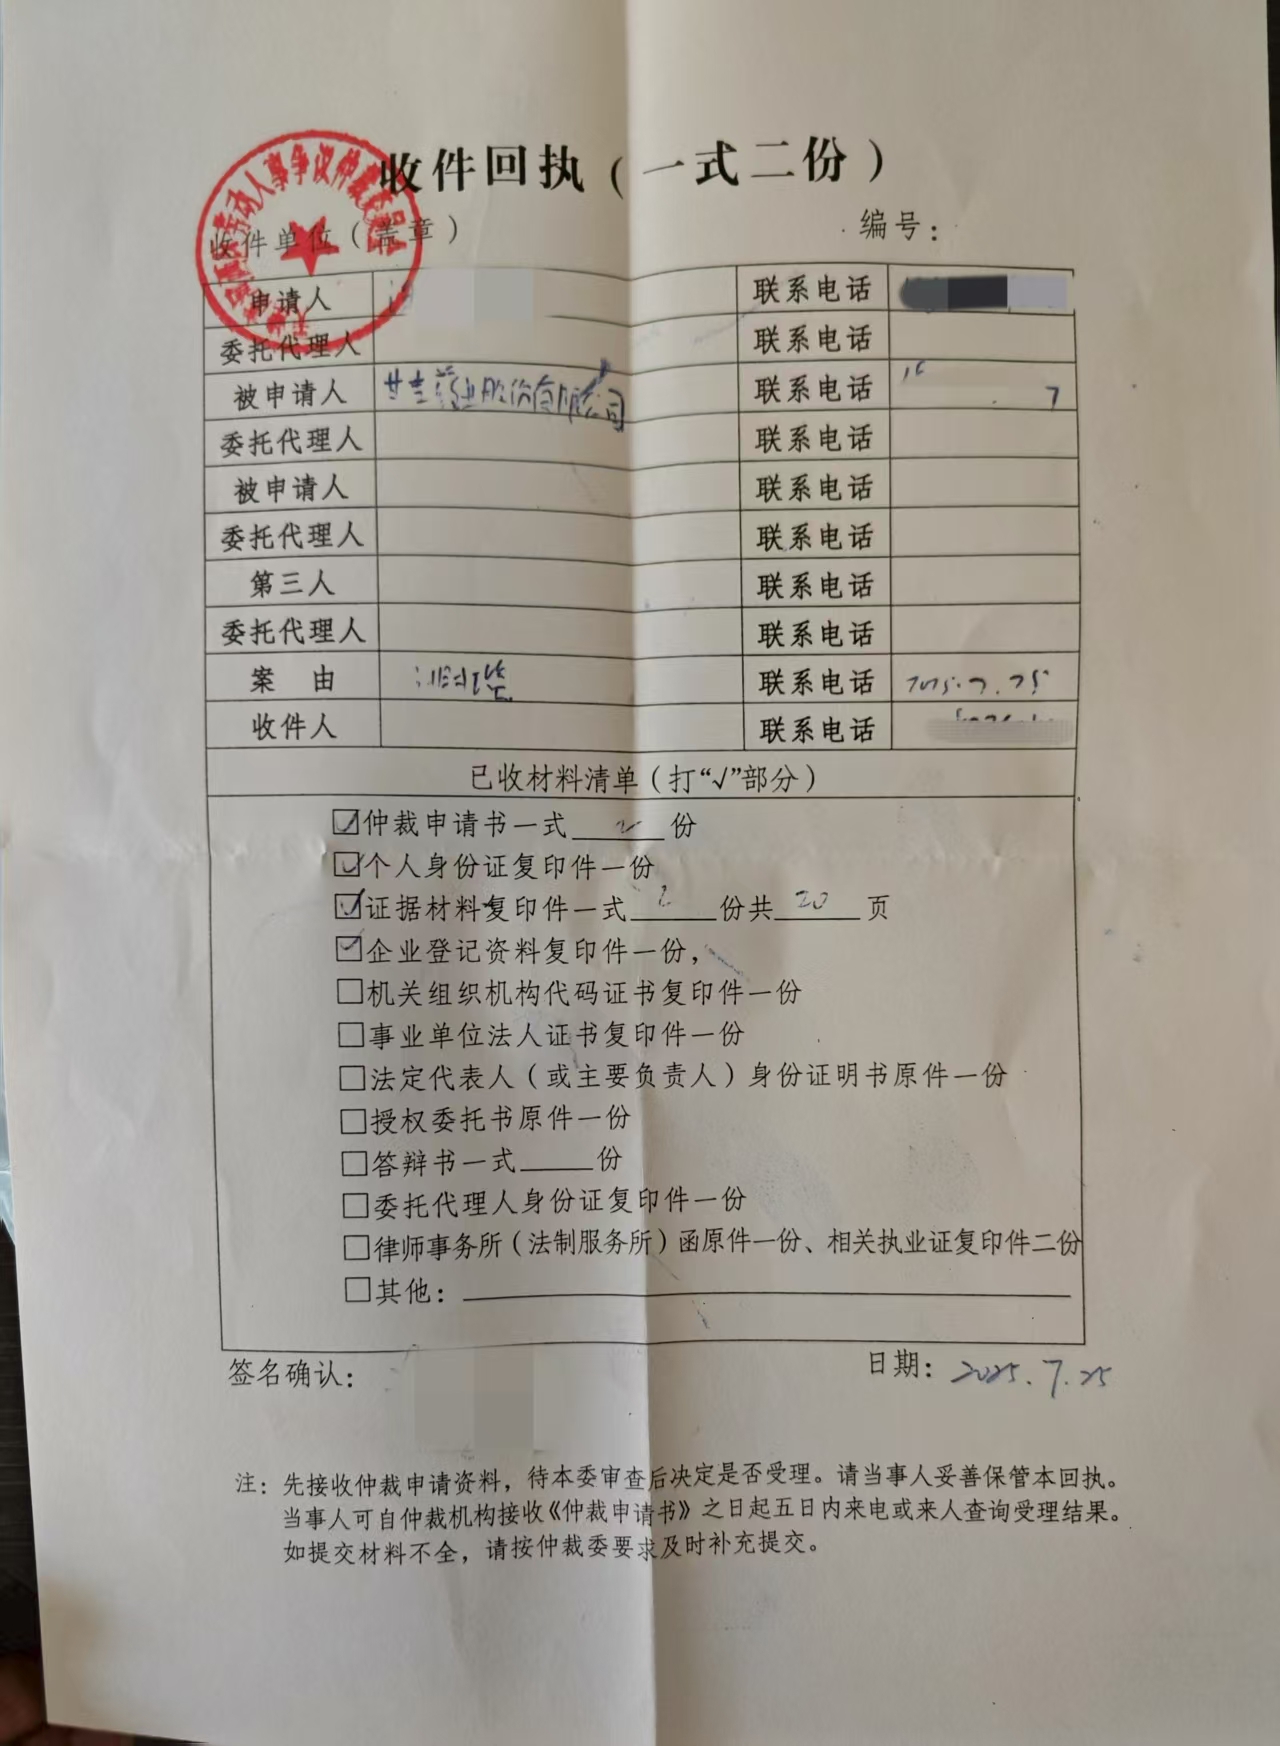 收件回执（一式二份）
收件单位（盖章） 编号：
申请人 联系电话
委托代理人 联系电话
被申请人 药业股份有限公司 联系电话 7
委托代理人 联系电话
被申请人 联系电话
委托代理人 联系电话
第三人 联系电话
委托代理人 联系电话
案由 联系电话 2025.7.25
收件人 联系电话
已收材料清单（打“√”部分）
☑仲裁申请书一式 2 份
☑个人身份证复印件一份
☑证据材料复印件一式 2 份共 20 页
☑企业登记资料复印件一份，
□机关组织机构代码证书复印件一份
□事业单位法人证书复印件一份
□法定代表人（或主要负责人）身份证明书原件一份
□授权委托书原件一份
□答辩书一式____份
□委托代理人身份证复印件一份
□律师事务所（法制服务所）函原件一份、相关执业证复印件二份
□其他：
签名确认： 日期：2025.7.25
注：先接收仲裁申请资料，待本委审查后决定是否受理。请当事人妥善保管本回执。
当事人可自仲裁机构接收《仲裁申请书》之日起五日内来电或来人查询受理结果。
如提交材料不全，请按仲裁委要求及时补充提交。